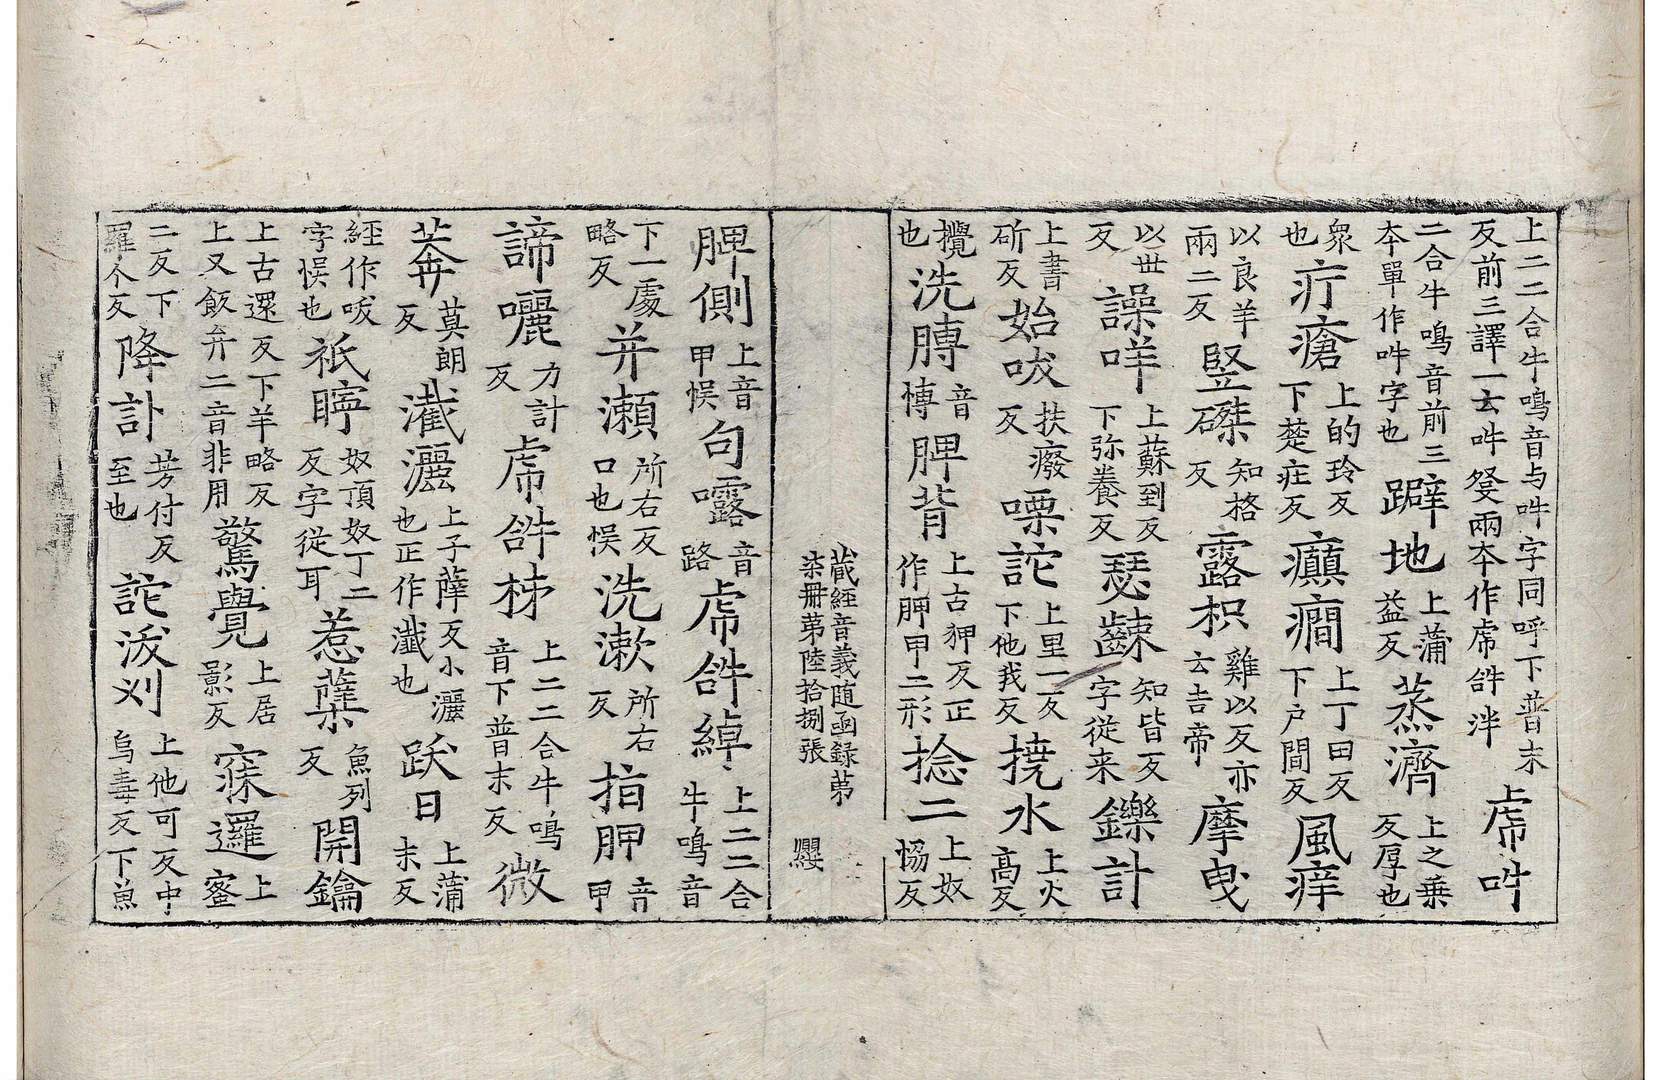 上二二合牛鳴音与吽字同呼下普末
反前三譯一云吽癹兩本作泮
吽
二合牛鳴音前三
本單作吽字也
躃地
上蒲
益反
蒸濟
上之乗
反厚也
衆
也
疔瘡
上的玲反
下楚疘反
癲癎
上丁田反
下户間反
風痒
以良羊
兩二反
竪磔
知格
反
露枳
雞以反亦
云吉帝
摩曳
以世
反
譟哶
上蘇到反
下弥養反
瑟
知皆反
字從来
鑠計
上書
斫反
始吠
扶癈
反
㗚詑
上里一反
下他我反
撓水
上火
高反
攪
也
洗膊
音
博
胛背
上古狎反正
作胛甲二形
捻二
上奴
協反
藏經音義随函録苐
柒冊苐陸拾捌張
纓
胛側
上音
甲悮
句㘔
音
路
綽
上二二合
牛鳴音
下一䖏
略反
并瀬
所右反
口也悮
洗漱
所右
反
指胛
音
甲
諦㘑
力計
反
上二二合牛鳴
音下普末反
微
莾
莫朗
反
灑
上子薛反小灑
也正作瀸也
跃日
上蒲
末反
經作吠
字悮也
祇聹
奴頂奴丁二
反字從耳
惹蘖
魚列
反
開鑰
上古還反下羊略反
上又飯弁二音非用
驚覺
上居
影反
寐邏
上
蜜
二反下
羅个反
降訃
芳付反
至也
詑刈
上他可反中
烏毒反下魚